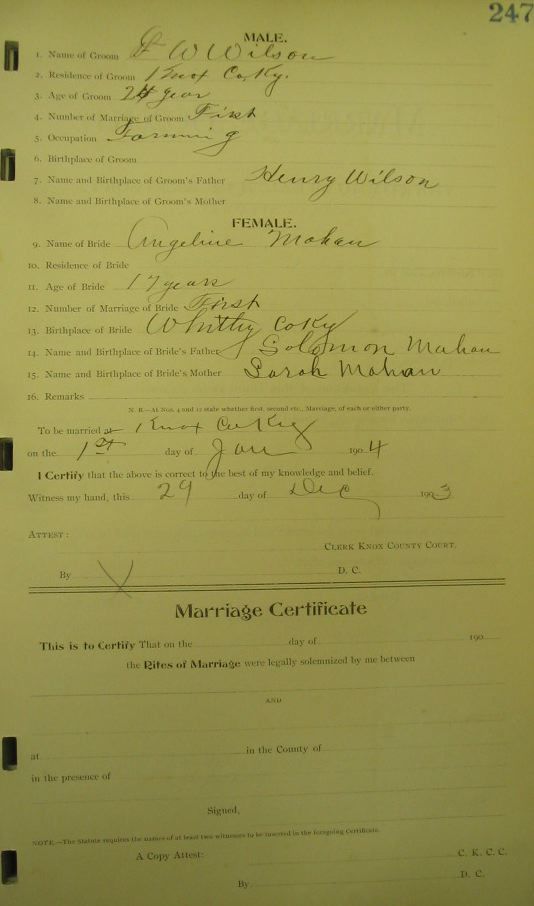 247
MALE.
1. Name of Groom W Wilson
2. Residence of Groom Knox Co Ky.
3. Age of Groom 24 year
4. Number of Marriage of Groom First
5. Occupation Farming
6. Birthplace of Groom
7. Name and Birthplace of Groom's Father Henry Wilson
8. Name and Birthplace of Groom's Mother
FEMALE.
9. Name of Bride Angeline Mahan
10. Residence of Bride
11. Age of Bride 17 years
12. Number of Marriage of Bride First
13. Birthplace of Bride Whitly Co Ky
14. Name and Birthplace of Bride's Father Solomon Mahan
15. Name and Birthplace of Bride's Mother Sarah Mahan
16. Remarks
N. B.—At Nos. 4 and 12 state whether first, second etc., Marriage, of each or either party.
To be married at Knox Co Ky
on the 1st day of Jan 1904
I Certify that the above is correct to the best of my knowledge and belief.
Witness my hand, this 29 day of Dec 1903
ATTEST:
CLERK KNOX COUNTY COURT.
By X D. C.
Marriage Certificate
This is to Certify That on the day of 190
the Rites of Marriage were legally solemnized by me between
AND
at in the County of
in the presence of
Signed,
NOTE.—The Statute requires the names of at least two witnesses to be inserted in the foregoing Certificate.
A Copy Attest: C. K. C. C.
By D. C.